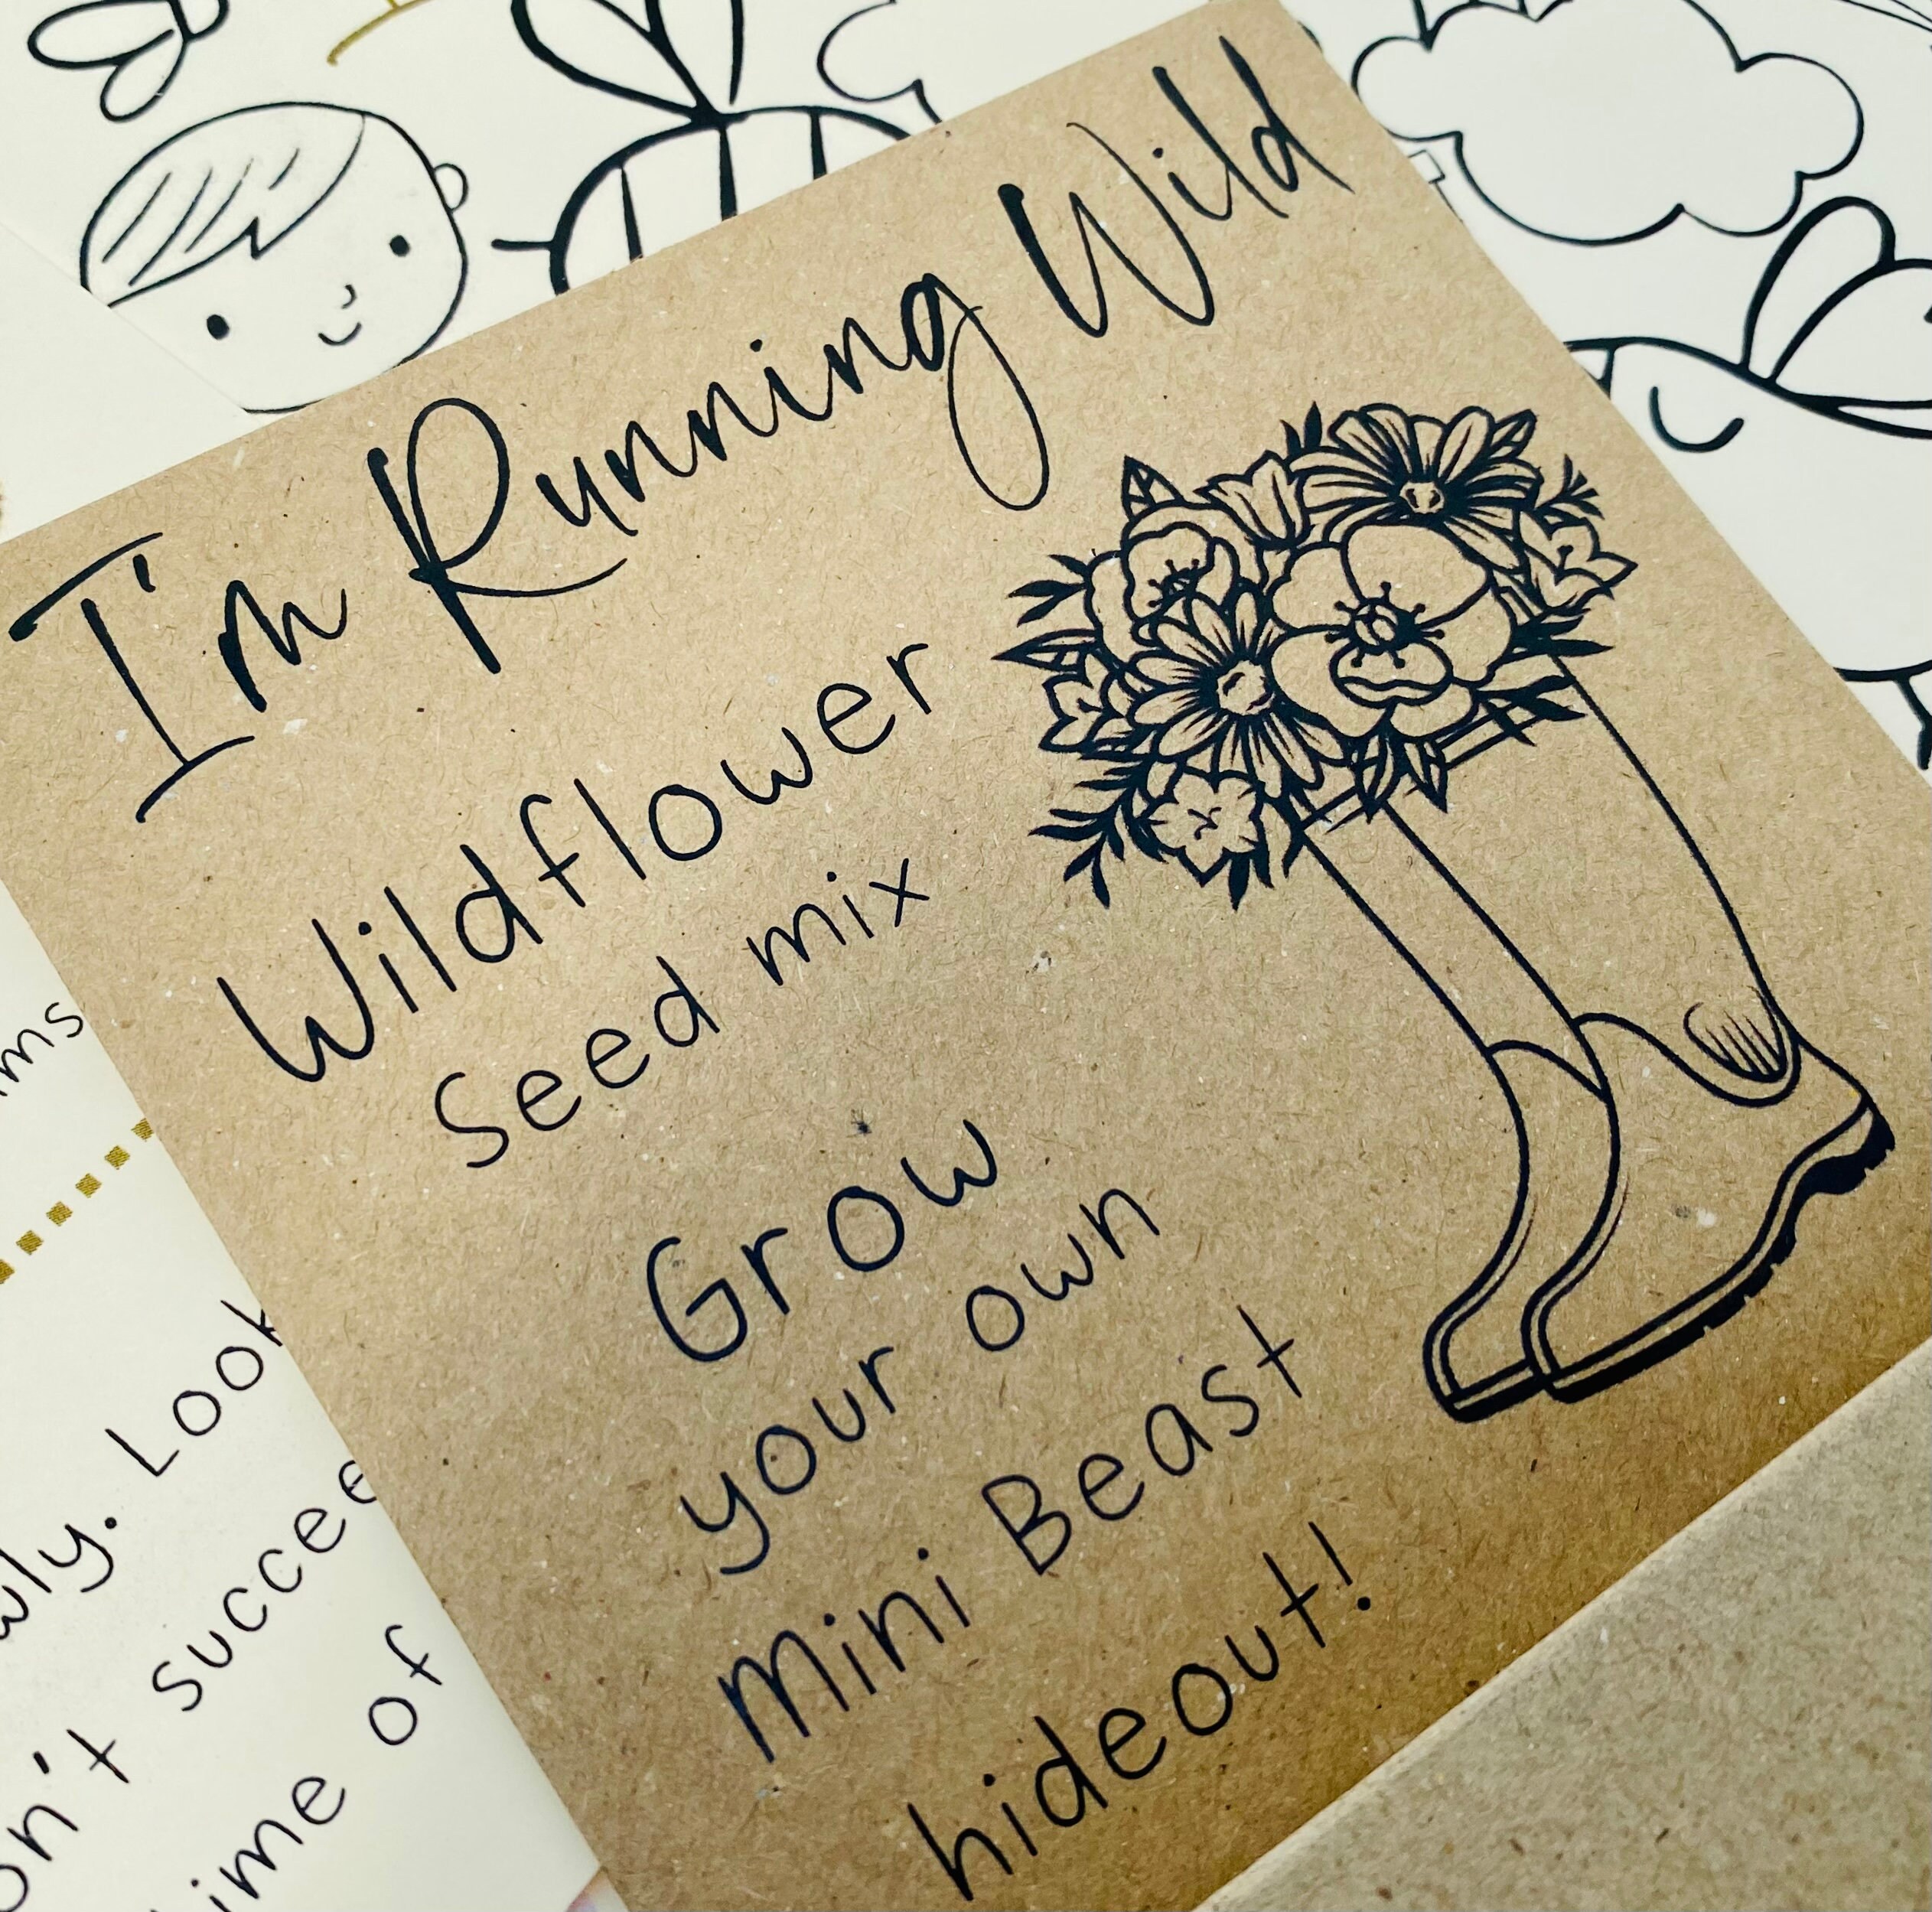 I'm Running Wild
Wildflower
Seed mix
Grow
your own
Mini Beast
hideout!
Look
succee
of